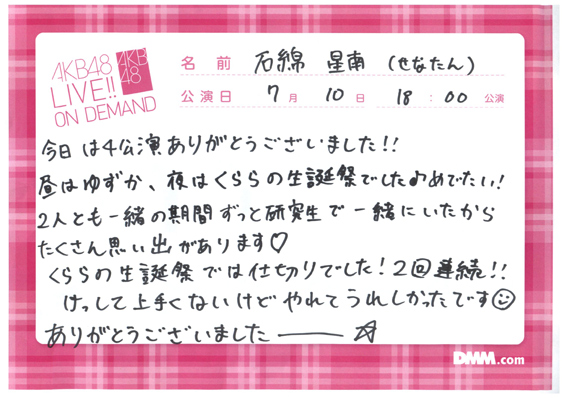 AKB48
LIVE!!
ON DEMAND
AKB
48
名前 石綿 星南 (せなたん)
公演日 7月 10日 18:00 公演
今日は4公演ありがとうございました!!
昼はゆずか、夜はくららの生誕祭でした♪めでたい!
2人とも一緒の期間ずっと研究生で一緒にいたから
たくさん思い出があります♡
くららの生誕祭では仕切りでした!2回連続!!
けっして上手くないけどやれてうれしかったです☺
ありがとうございました――☆
DMM.com